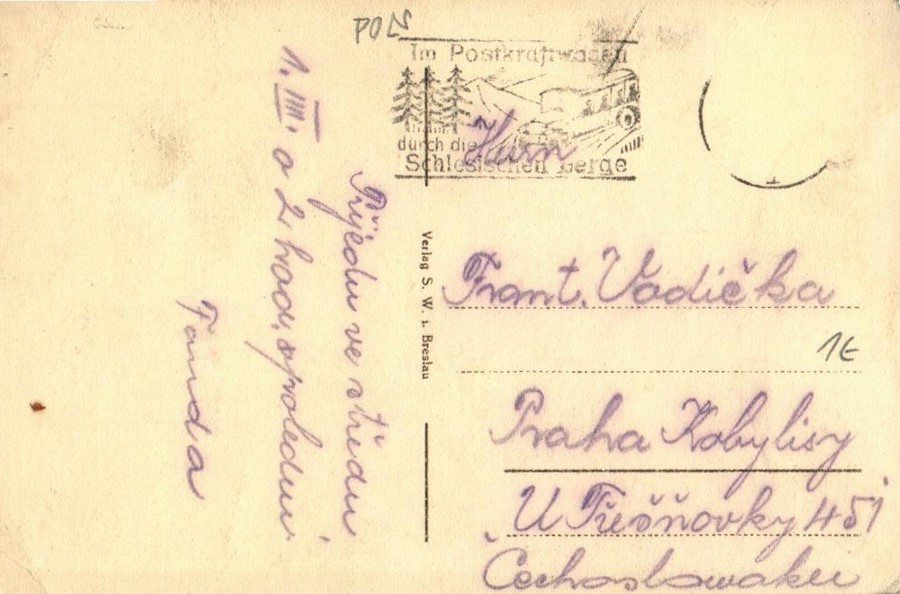 POL
Im Postkraftwagen
durch die
Schlesischen Berge
Přijedu ve středu
1. IIII. o 2 hrod. spoledni
Fanda
Verlag S. W. i. Breslau
Frant. Vodička
1€
Praha Kobylisy
U Třešňovky 451
Čechoslowakei